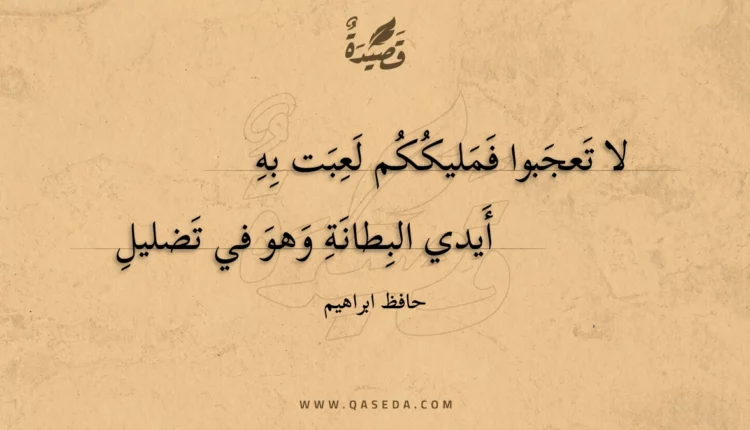 قَصِيْدَةٌ
لا تَعجَبوا فَمَليكُكُم لَعِبَت بِهِ
أَيدي البِطانَةِ وَهوَ في تَضليلِ
حافظ ابراهيم
WWW.QASEDA.COM